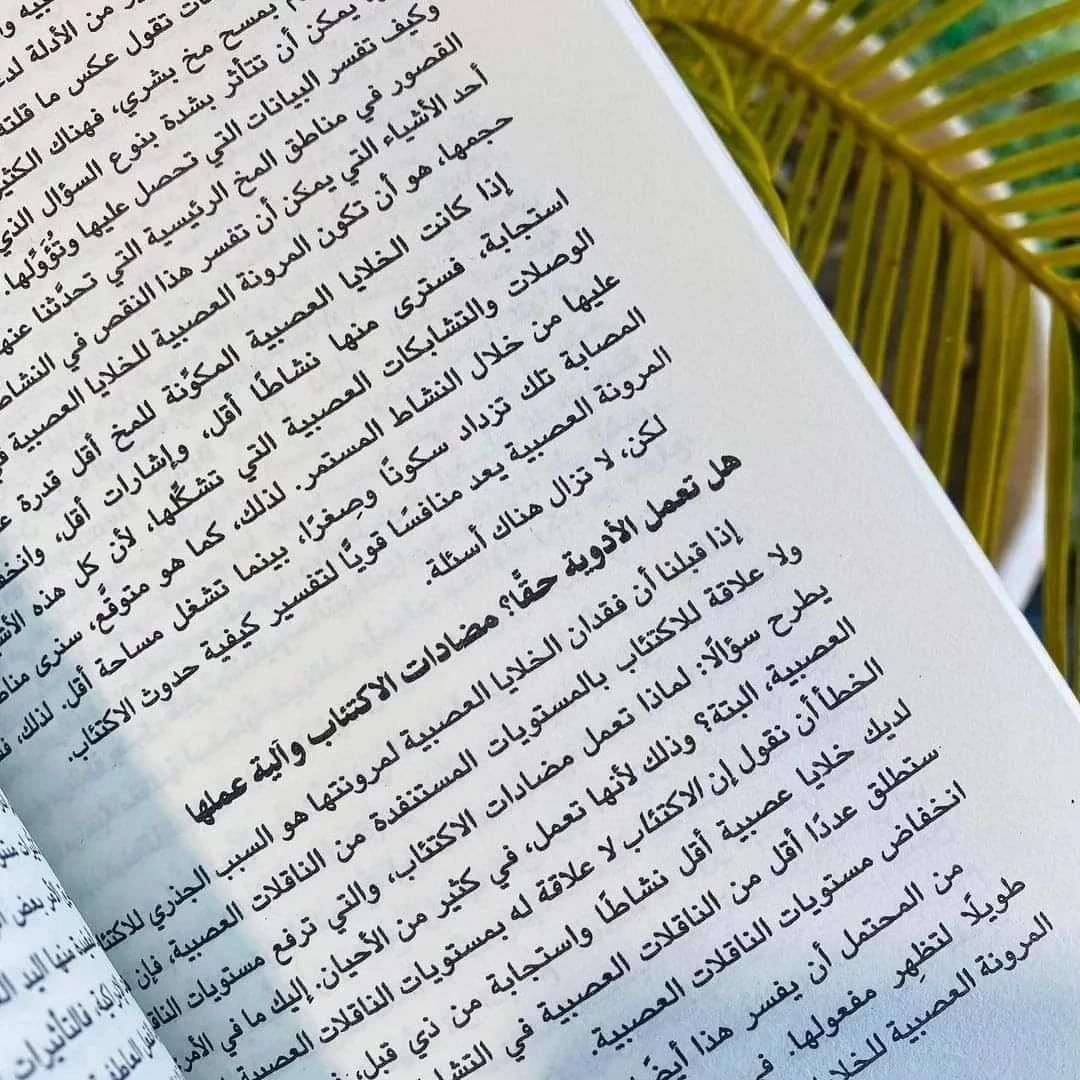 من الأدلة
تقول عكس ما قلته
بمسح مخ بشري، فهناك الكثير
يمكن أن تتأثر بشدة بنوع السؤال الذي
وكيف تفسر البيانات التي تحصل عليها وتُؤَوِّلها.
القصور في مناطق المخ الرئيسية التي تحدَّثنا عنها
أحد الأشياء التي يمكن أن تفسر هذا النقص في النشاط
حجمها، هو أن تكون المرونة العصبية للخلايا العصبية
إذا كانت الخلايا العصبية المكوِّنة للمخ أقل قدرة
استجابة، فسترى منها نشاطًا أقل، وإشارات أقل،
الوصلات والتشابكات العصبية التي تشكِّلها، لأن كل هذه
عليها من خلال النشاط المستمر. لذلك، كما هو متوقَّع، سنرى
المصابة تلك تزداد سكونًا وصِغرًا، بينما تشغل مساحة أقل. لذلك،
المرونة العصبية يعد منافسًا قويًّا لتفسير كيفية حدوث الاكتئاب.
لكن، لا تزال هناك أسئلة.
هل تعمل الأدوية حقًّا؟ مضادات الاكتئاب وآلية عملها
إذا قبلنا أن فقدان الخلايا العصبية لمرونتها هو السبب الجذري
ولا علاقة للاكتئاب بالمستويات المستنفدة من الناقلات العصبية، فإن
يطرح سؤالًا: لماذا تعمل مضادات الاكتئاب، والتي ترفع مستويات
العصبية، البتة؟ وذلك لأنها تعمل، في كثير من الأحيان. إليك ما في الأمر:
الخطأ أن نقول إن الاكتئاب لا علاقة له بمستويات الناقلات العصبية
لديك خلايا عصبية أقل نشاطًا واستجابة من ذي قبل،
ستطلق عددًا أقل من الناقلات العصبية في
انخفاض مستويات الناقلات العصبية.
من المحتمل أن يفسر هذا أيضًا
طويلًا لتظهر مفعولها.
المرونة العصبية